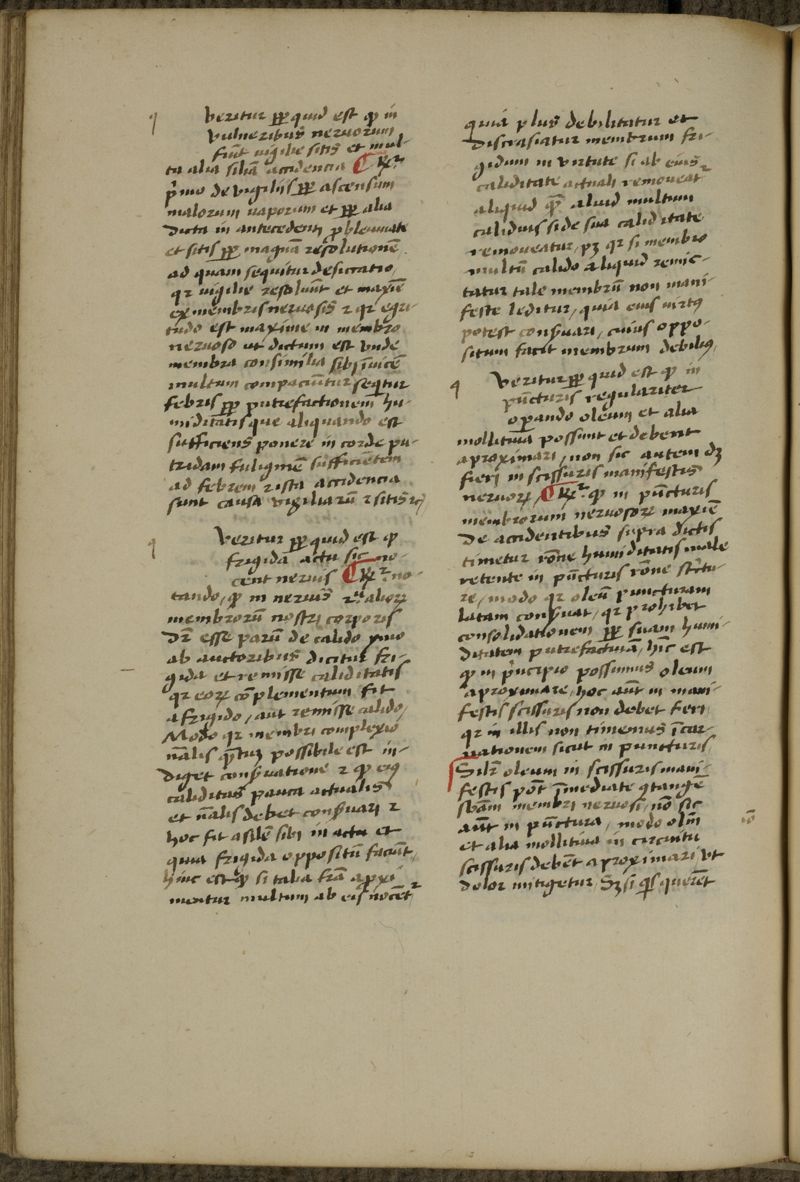 q
Veritur ꝓpt quid est ꝙ in
vulneribus nervorum
fiūt vigilie sitis et mul-
ta alia siĺia accidencia ¶ Rʳ
p̄mo de vigiliis ꝓpt ascensum
malorum vaporum et ꝓpt alia
dicta in antecedenti ꝓbleumate
et sitis ꝓpt magnā resolutionē
ad quam sequitur desiccatio,
qꝛ vigilie resoluūt et maxiē
ex membris nervosis ⁊ qꝛ egri-
tudo est maxime in membro
nervoso ut dictum est vnde
membra consimilia sibi īvicē
multum compaciūtur seqͥtur
febris ꝓpt putrefactionem hu-
miditatis que aliquando est
sufficiens ponere in corde pu-
tridam fuligniē sufficiētem
ad febrem ⁊ ista accidencia
sunt causa vigiliarū ⁊ sitis ⁊c
q
Veritur ꝓpt quid est ꝙ
frigida actu sic no-
cent nervis ¶ Rʳ no-
tando, ꝙ in nervis ⁊ alioꝝ
membrorū nostri corporis
dr̄ esse parū de calido ymo
ab auctoribus dicitur fri-
gida et remisse caliditatis
qꝛ eoꝝ cōplementum fit
a frigido, aut remisse calido,
Modo qꝛ membri complexio
nālis q̄ntū possibile est in-
diget conẛuatione ⁊ ꝙ eiꝰ
caliditas pauca actualis
et nālis debet conẛuari ⁊
hoc fit a siĺe sibi in actu et
quia frigida oppositū faciūt,
hinc est ꝙ si talia frā apxi
mentur multum ab eis nocēt
quia plus debilitatur et
discrasiatur membrum fri-
gidum in virtute si ab eius
caliditate actuali removeat
aliquid q̄ aliud multum
calidius si de sua caliditate
removeatur, pꝫ qꝛ si membro
multū calido aliquid remit-
tatur tale membrū non mani-
feste leditur, quia eius virtꝰ
potest conẛuari, cuius oppo-
situm facit membrum debilꝫ
q
Veritur ꝓpt quid est ꝙ in
pūcturis regulariter
opando oleum et alia
mollitiva possunt et debent
aproximari, non sic autem dꝫ
fieri in scissuris manifestis
nervoꝝ, ¶ Rʳ ꝙ in pūcturis
membrorum nervosoꝝ maxiē
de accidentibus supra dictis
timetur rōne humiditatis male
retente in pūcturis rōne strictu-
re, modo qꝛ oleū puncturam
latam conẛuat, qꝛ prohibet
consolidationem ꝓpt suam humi-
ditatem putrefactivā, hīc est
ꝙ in p̄ncipio possumus oleum
aproximare, hoc aūt in mani-
festis scissuris non debet fieri
qꝛ in illis non timemus īcar-
nationem sicut in puncturis
Siĺr oleum in scissuris mani-
festis pōt īmediate ꝯtangē
sbām membri nervosi, nō sic
aūt in pūctura, modo olm̄
et alia mollitiva in circuitu
scissuris debēt aproximari vt
dolor mitigetur, Sꝫ si qͥs queret